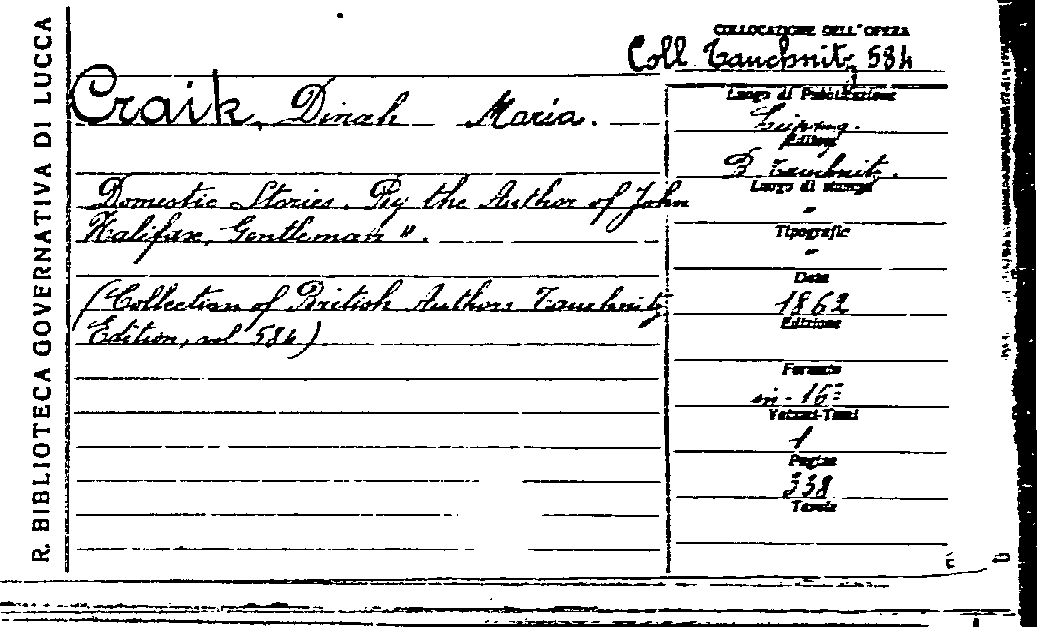 R. BIBLIOTECA GOVERNATIVA DI LUCCA
COLLOCAZIONE DELL'OPERA
Coll Tauchnitz 584
Craik, Dinah Maria.
Domestic Stories. By the Author of John
Halifax, Gentleman ".
(Collection of British Authors Tauchnitz
Edition, vol 584)
Luogo di Pubblicazione
Leipzig.
Editore
B. Tauchnitz.
Luogo di stampa
"
Tipografie
"
Data
1862
Edizione
Formato
in-16°
Volumi-Tomi
1
Pagine
338
Tavole